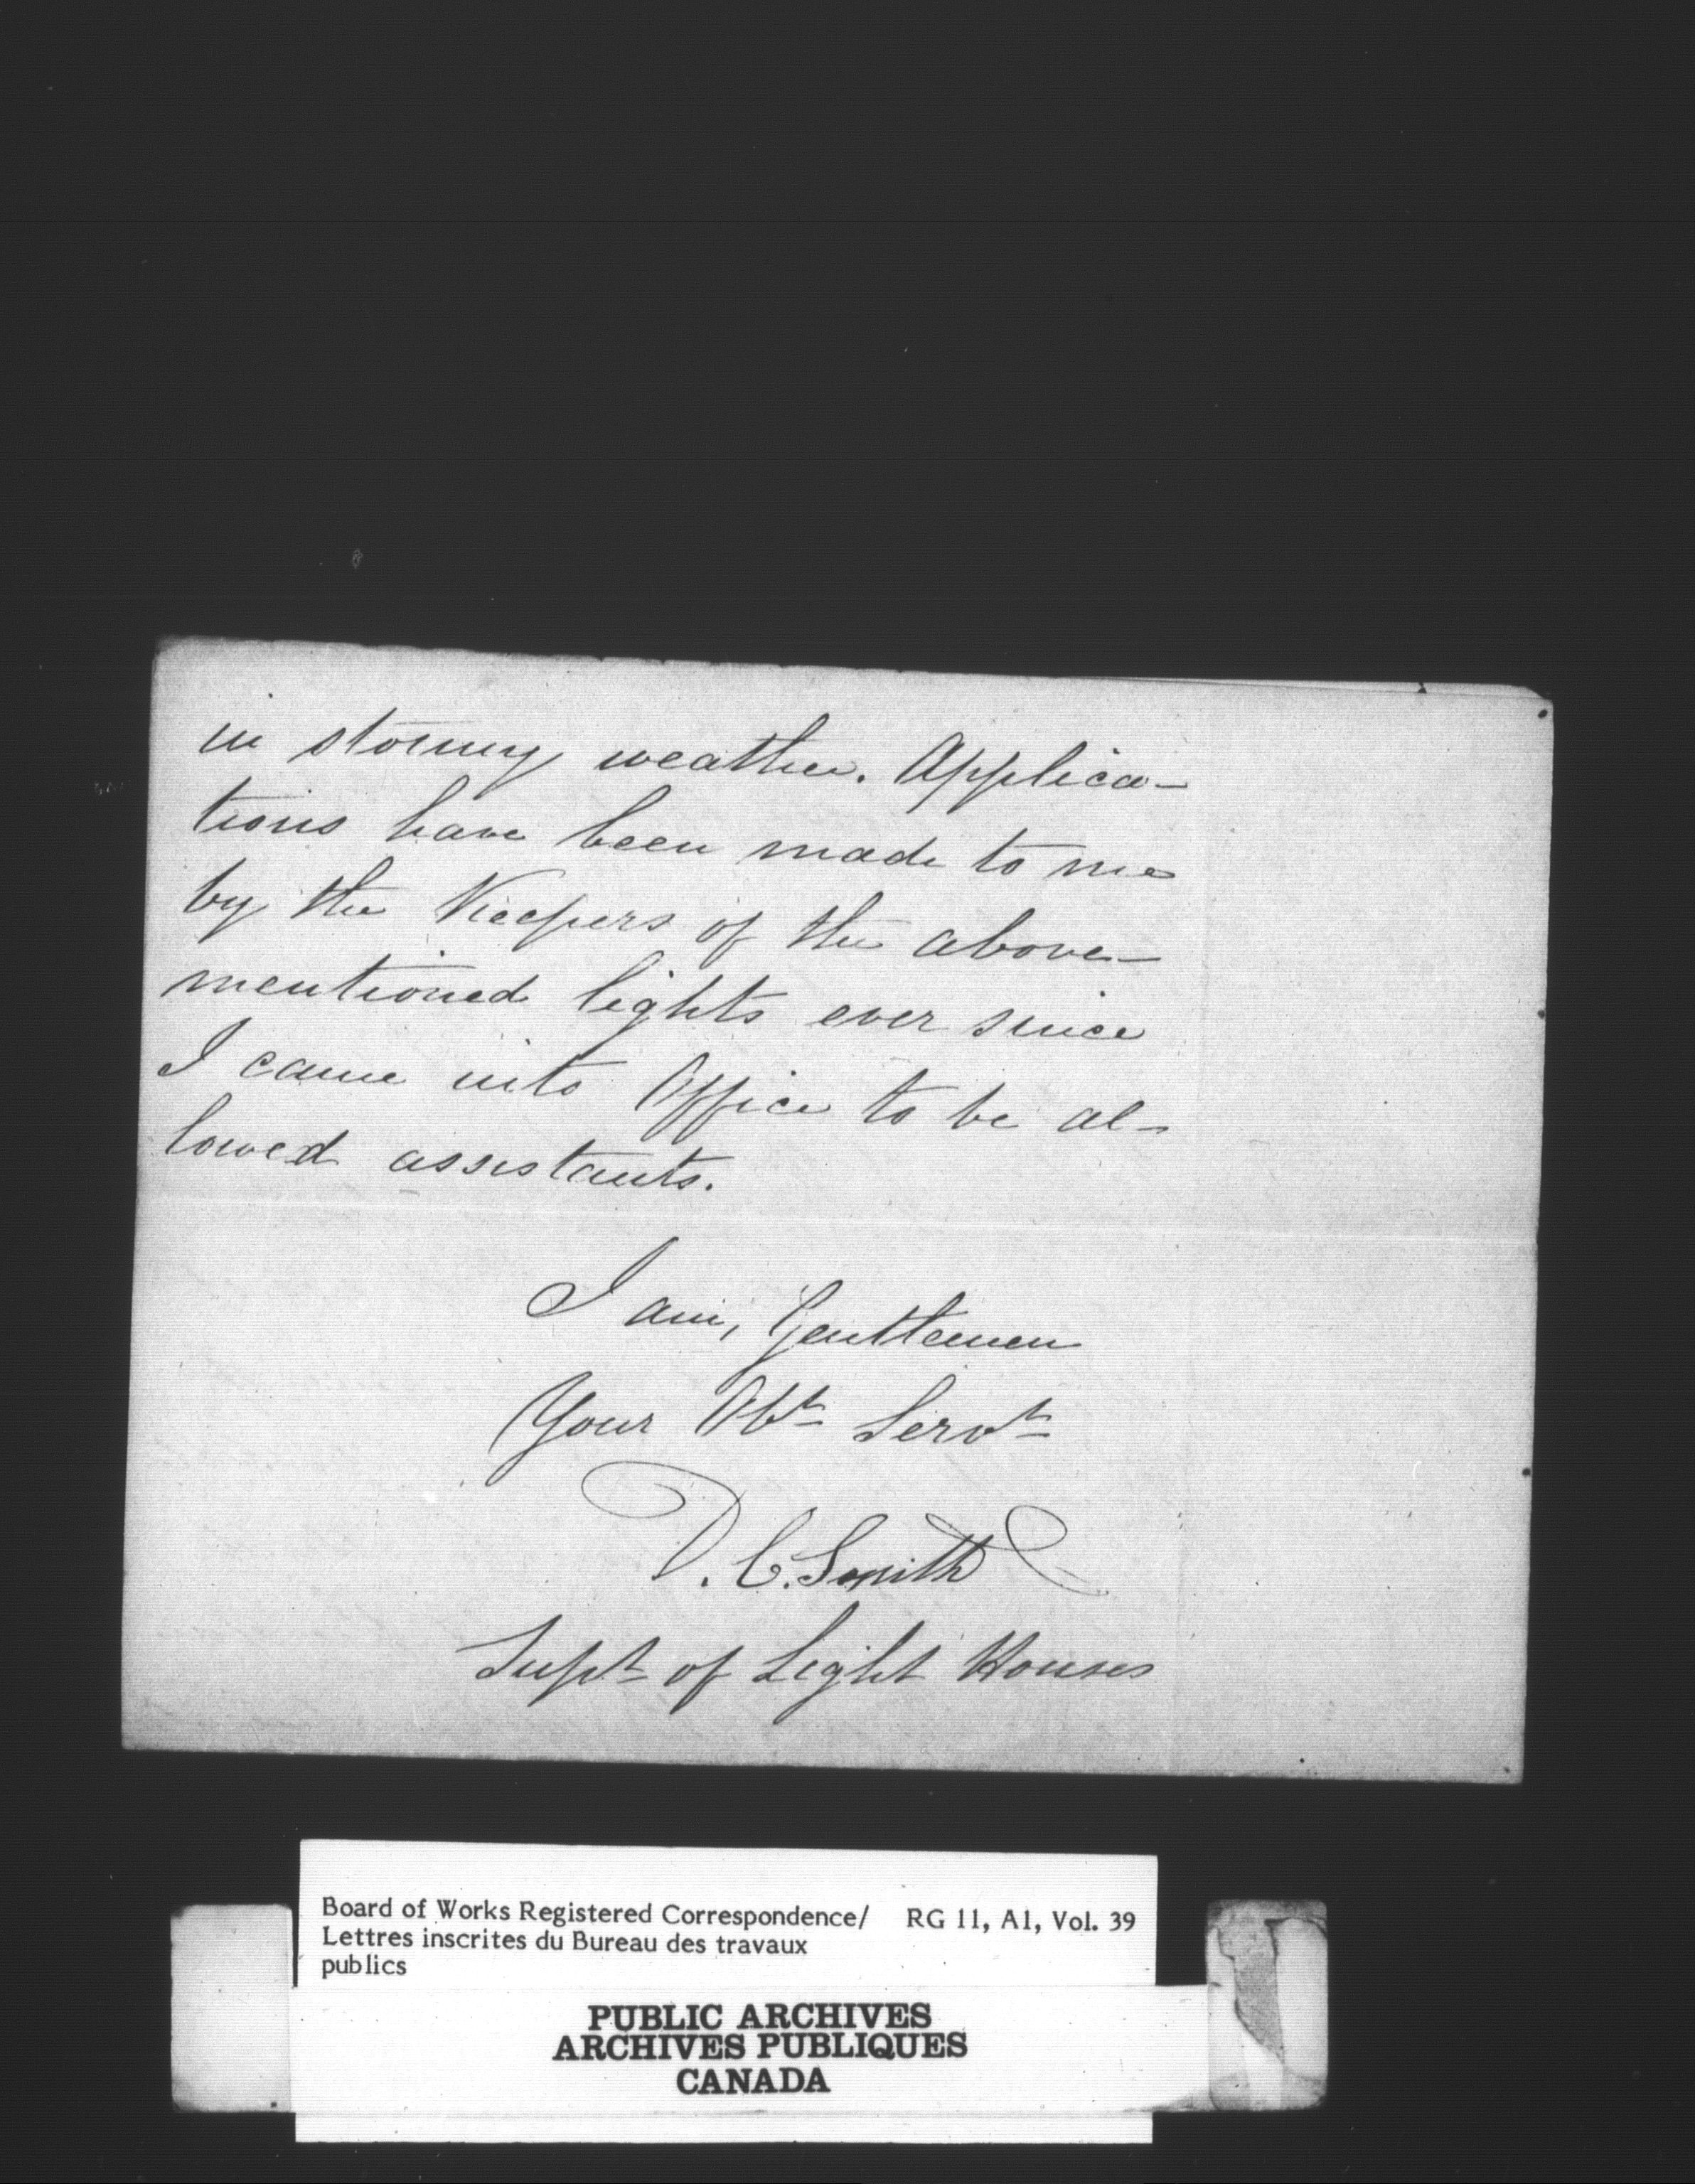 in stormy weather. Applica-
tions have been made to me
by the Keepers of the above-
mentioned lights ever since
I came into Office to be al-
lowed assistants.
I am, Gentlemen
Your Obt Servt
D. C. Smith
Supt of Light Houses
Board of Works Registered Correspondence/ RG 11, A1, Vol. 39
Lettres inscrites du Bureau des travaux
publics
PUBLIC ARCHIVES
ARCHIVES PUBLIQUES
CANADA